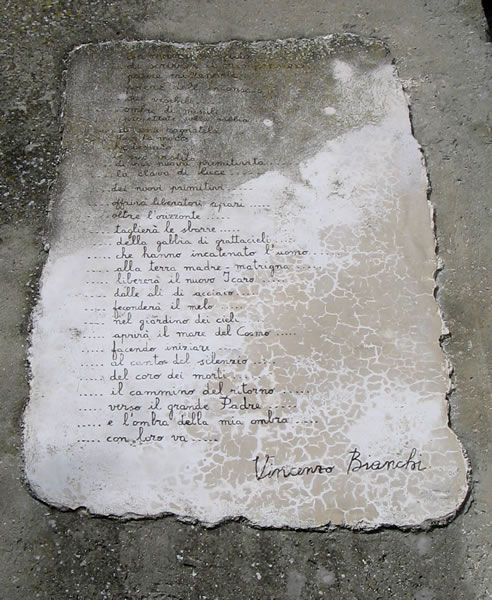 potere dell'inconscio
ombre di missili
proiettate sulla sabbia
di una nuova primitività .....
la clava di luce .....
dei nuovi primitivi .....
offrirà liberatori spazi .....
oltre l'orizzonte .....
taglierà le sbarre .....
..... della gabbia di grattacieli .....
..... che hanno incatenato l'uomo .....
..... alla terra madre-matrigna .....
..... libererà il nuovo Icaro .....
..... dalle ali di acciaio .....
..... feconderà il melo .....
..... nel giardino dei cieli .....
..... aprirà il mare del Cosmo .....
..... facendo iniziare .....
..... al canto del silenzio .....
..... del coro dei morti .....
..... il cammino del ritorno .....
..... verso il grande Padre .....
..... e l'ombra della mia ombra .....
..... con loro va .....
Vincenzo Bianchi